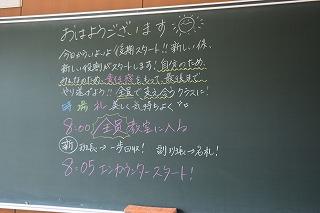 おはようございます
今日からいよいよ後期スタート!!新しい係、
新しい役割がスタートします!自分のため、
みんなのため、責任感をもって、最後まで
やり遂げよう!!全員で支え合うクラスに!
時 場 礼 美しく気持ちよく
8:00 全員教室に入る
新 班長→一歩日収! 副班長→名札!
8:05 エンカウンタースタート!